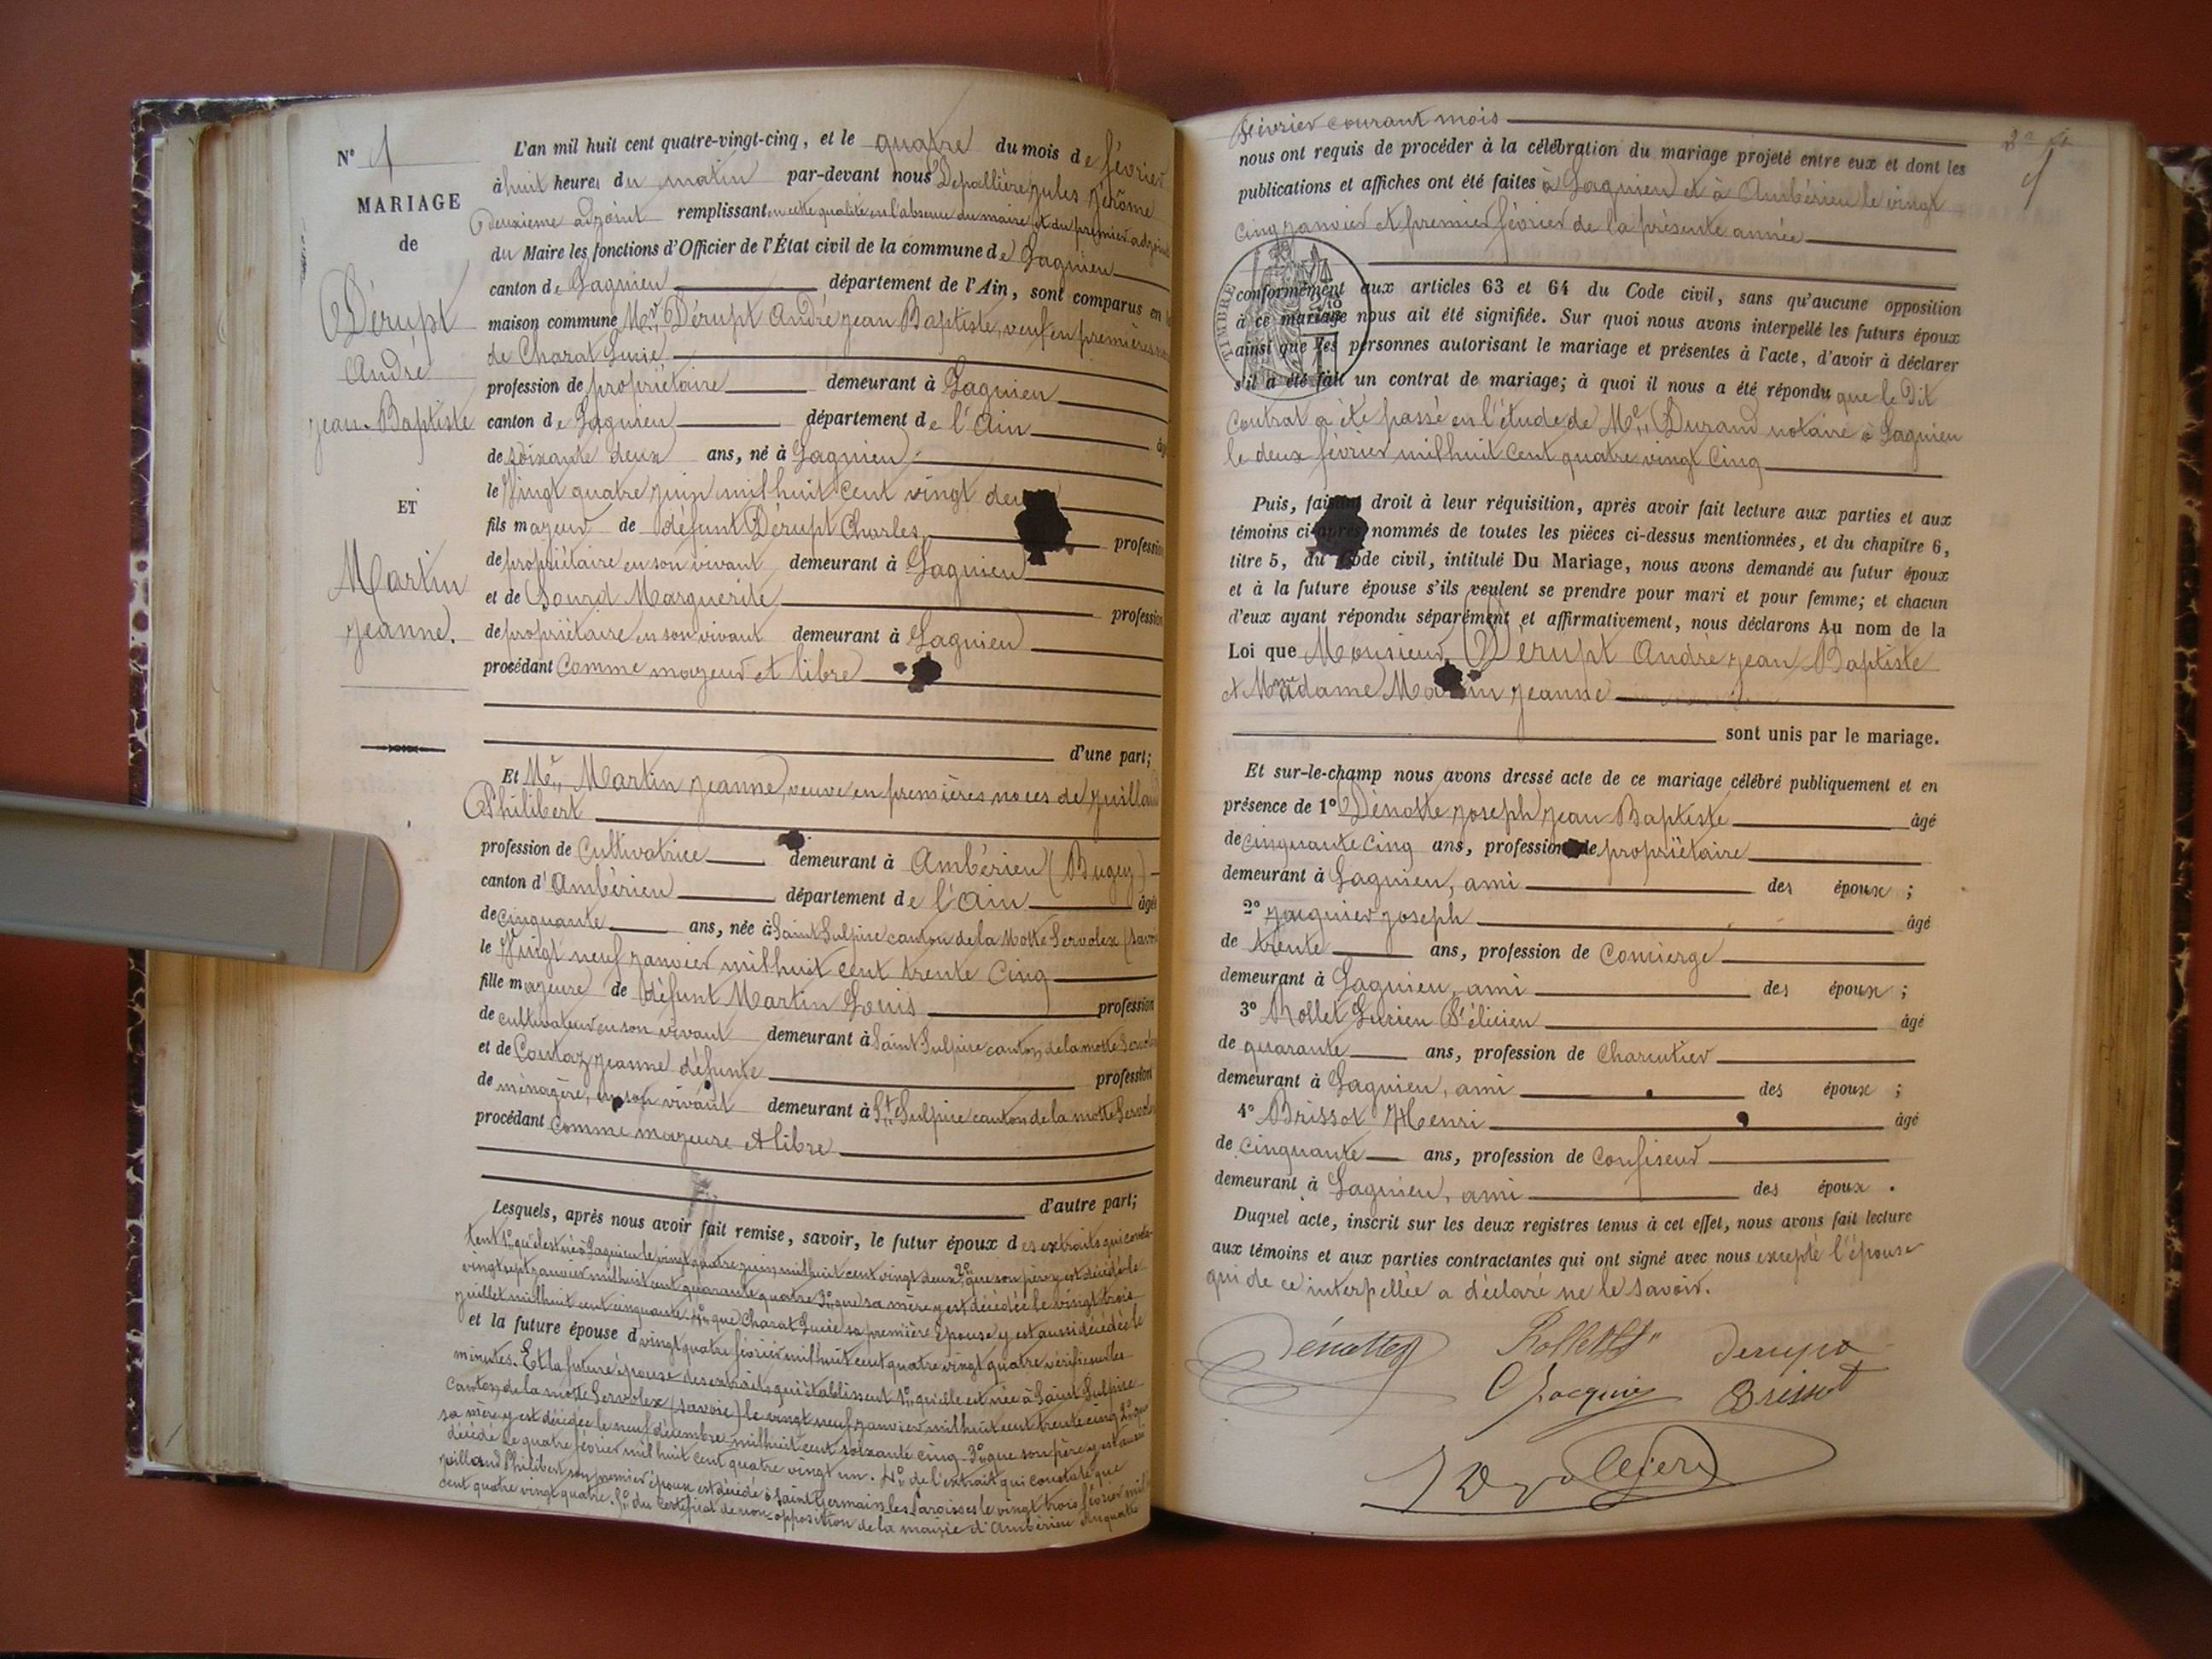 N° 1
MARIAGE
de
Dérupt
André
jean-Baptiste
ET
Martin
jeanne.
L'an mil huit cent quatre-vingt-cinq, et le quatre du mois de février
à huit heures du matin par-devant nous Depallière jules jérôme
Deuxieme adjoint remplissant en cette qualité en l'absence du maire et du premier adjoint
du Maire les fonctions d'Officier de l'État civil de la commune de Lagnieu
canton de Lagnieu département de l'Ain, sont comparus en la
maison commune Mr,, Dérupt André jean Baptiste, veuf en premières
de Charat Lucie
profession de propriétaire demeurant à Lagnieu
canton de Lagnieu département de l'Ain
de soixante deux ans, né à Lagnieu
le vingt quatre juin mil huit cent vingt deux
fils majeur de défunt Dérupt Charles profession
de propriétaire en son vivant demeurant à Lagnieu
et de Sourd Marguerite profession
de propriétaire en son vivant demeurant à Lagnieu
procédant comme majeur et libre
d'une part;
Et Me,, Martin jeanne, veuve en premières noces de juilland
Philibert
profession de Cultivatrice demeurant à Ambérieu (Bugey)
canton d'Ambérieu département de l'Ain âgée
de cinquante ans, née à Saint Sulpice canton de la Motte Servolex (Savoie
le vingt neuf janvier mil huit cent trente cinq
fille majeure de défunt Martin Louis profession
de cultivateur en son vivant demeurant à Saint Sulpice canton de la motte Servolex
et de Coutaz jeanne défunte profession
de ménagère, en son vivant demeurant à St,, Sulpice canton de la motte Servolex
procédant comme majeure et libre
d'autre part;
Lesquels, après nous avoir fait remise, savoir, le futur époux des extraits qui consta-
tent 1° qu'il est né à Lagnieu le vingt quatre juin mil huit cent vingt deux 2° que son père y est décédé le
vingt sept janvier mil huit cent quarante quatre 3° que sa mère y est décédée le vingt trois
juillet mil huit cent cinquante. 4° que Charat Lucie sa première Epouse y est aussi décédée le
et la future épouse d vingt quatre février mil huit cent quatre vingt quatre vérifié sur les
minutes. Et la future épouse des extraits qui établissent 1° qu'elle est née à Saint Sulpice
Canton de la motte Servolex (Savoie) le vingt neuf janvier mil huit cent trente cinq 2° que
sa mère y est décédée le neuf décembre mil huit cent soixante cinq. 3° que son père y est aussi
décédé le quatre février mil huit cent quatre vingt un. 4° de l'extrait qui constate que
juilland Philibert son premier époux est décédé à Saint Germain les Paroisses le vingt trois février mil
cent quatre vingt quatre. 5° du certificat de non-opposition de la mairie d'Ambérieu du quatre
février courant mois
nous ont requis de procéder à la célébration du mariage projeté entre eux et dont les
publications et affiches ont été faites à Lagnieu et à Ambérieu le vingt
cinq janvier et premier février de la présente année
TIMBRE
conformément aux articles 63 et 64 du Code civil, sans qu'aucune opposition
à ce mariage nous ait été signifiée. Sur quoi nous avons interpellé les futurs époux
ainsi que les personnes autorisant le mariage et présentes à l'acte, d'avoir à déclarer
s'il a été fait un contrat de mariage; à quoi il nous a été répondu que le dit
contrat a été passé en l'étude de Me,, Durand notaire à Lagnieu
le deux février mil huit cent quatre vingt cinq
Puis, faisant droit à leur réquisition, après avoir fait lecture aux parties et aux
témoins ci-après nommés de toutes les pièces ci-dessus mentionnées, et du chapitre 6,
titre 5, du Code civil, intitulé Du Mariage, nous avons demandé au futur époux
et à la future épouse s'ils veulent se prendre pour mari et pour femme; et chacun
d'eux ayant répondu séparément et affirmativement, nous déclarons Au nom de la
Loi que Monsieur Dérupt André jean Baptiste
et Madame Martin jeanne
sont unis par le mariage.
Et sur-le-champ nous avons dressé acte de ce mariage célébré publiquement et en
présence de 1° Dénotte joseph jean Baptiste âgé
de cinquante cinq ans, profession de propriétaire
demeurant à Lagnieu, ami des époux ;
2° jacquier joseph âgé
de trente ans, profession de Concierge
demeurant à Lagnieu, ami des époux ;
3° Rollet Lucien Félicien âgé
de quarante ans, profession de Charcutier
demeurant à Lagnieu, ami des époux ;
4° Brissot Henri âgé
de cinquante ans, profession de Confiseur
demeurant à Lagnieu, ami des époux .
Duquel acte, inscrit sur les deux registres tenus à cet effet, nous avons fait lecture
aux témoins et aux parties contractantes qui ont signé avec nous excepté l'épouse
qui de ce interpellée a déclaré ne le savoir.
Dénotte Rollet Derupt
Jacquier Brissot